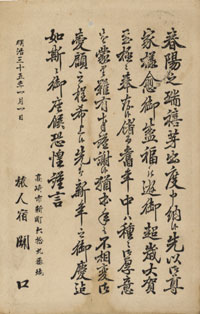 春陽之瑞禧芽出度申納候先以御尊
家御益福被遊御超歳大賀
至極之奉存候旧年中ハ種々御厚意
を蒙り難有奉謹謝候猶本年も不相変御
愛顧之程希上候先ハ新年之御慶迄
如斯ニ御座候恐惶謹言
明治三十五年一月一日
高崎市新町六拾九番地
旅人宿 関口